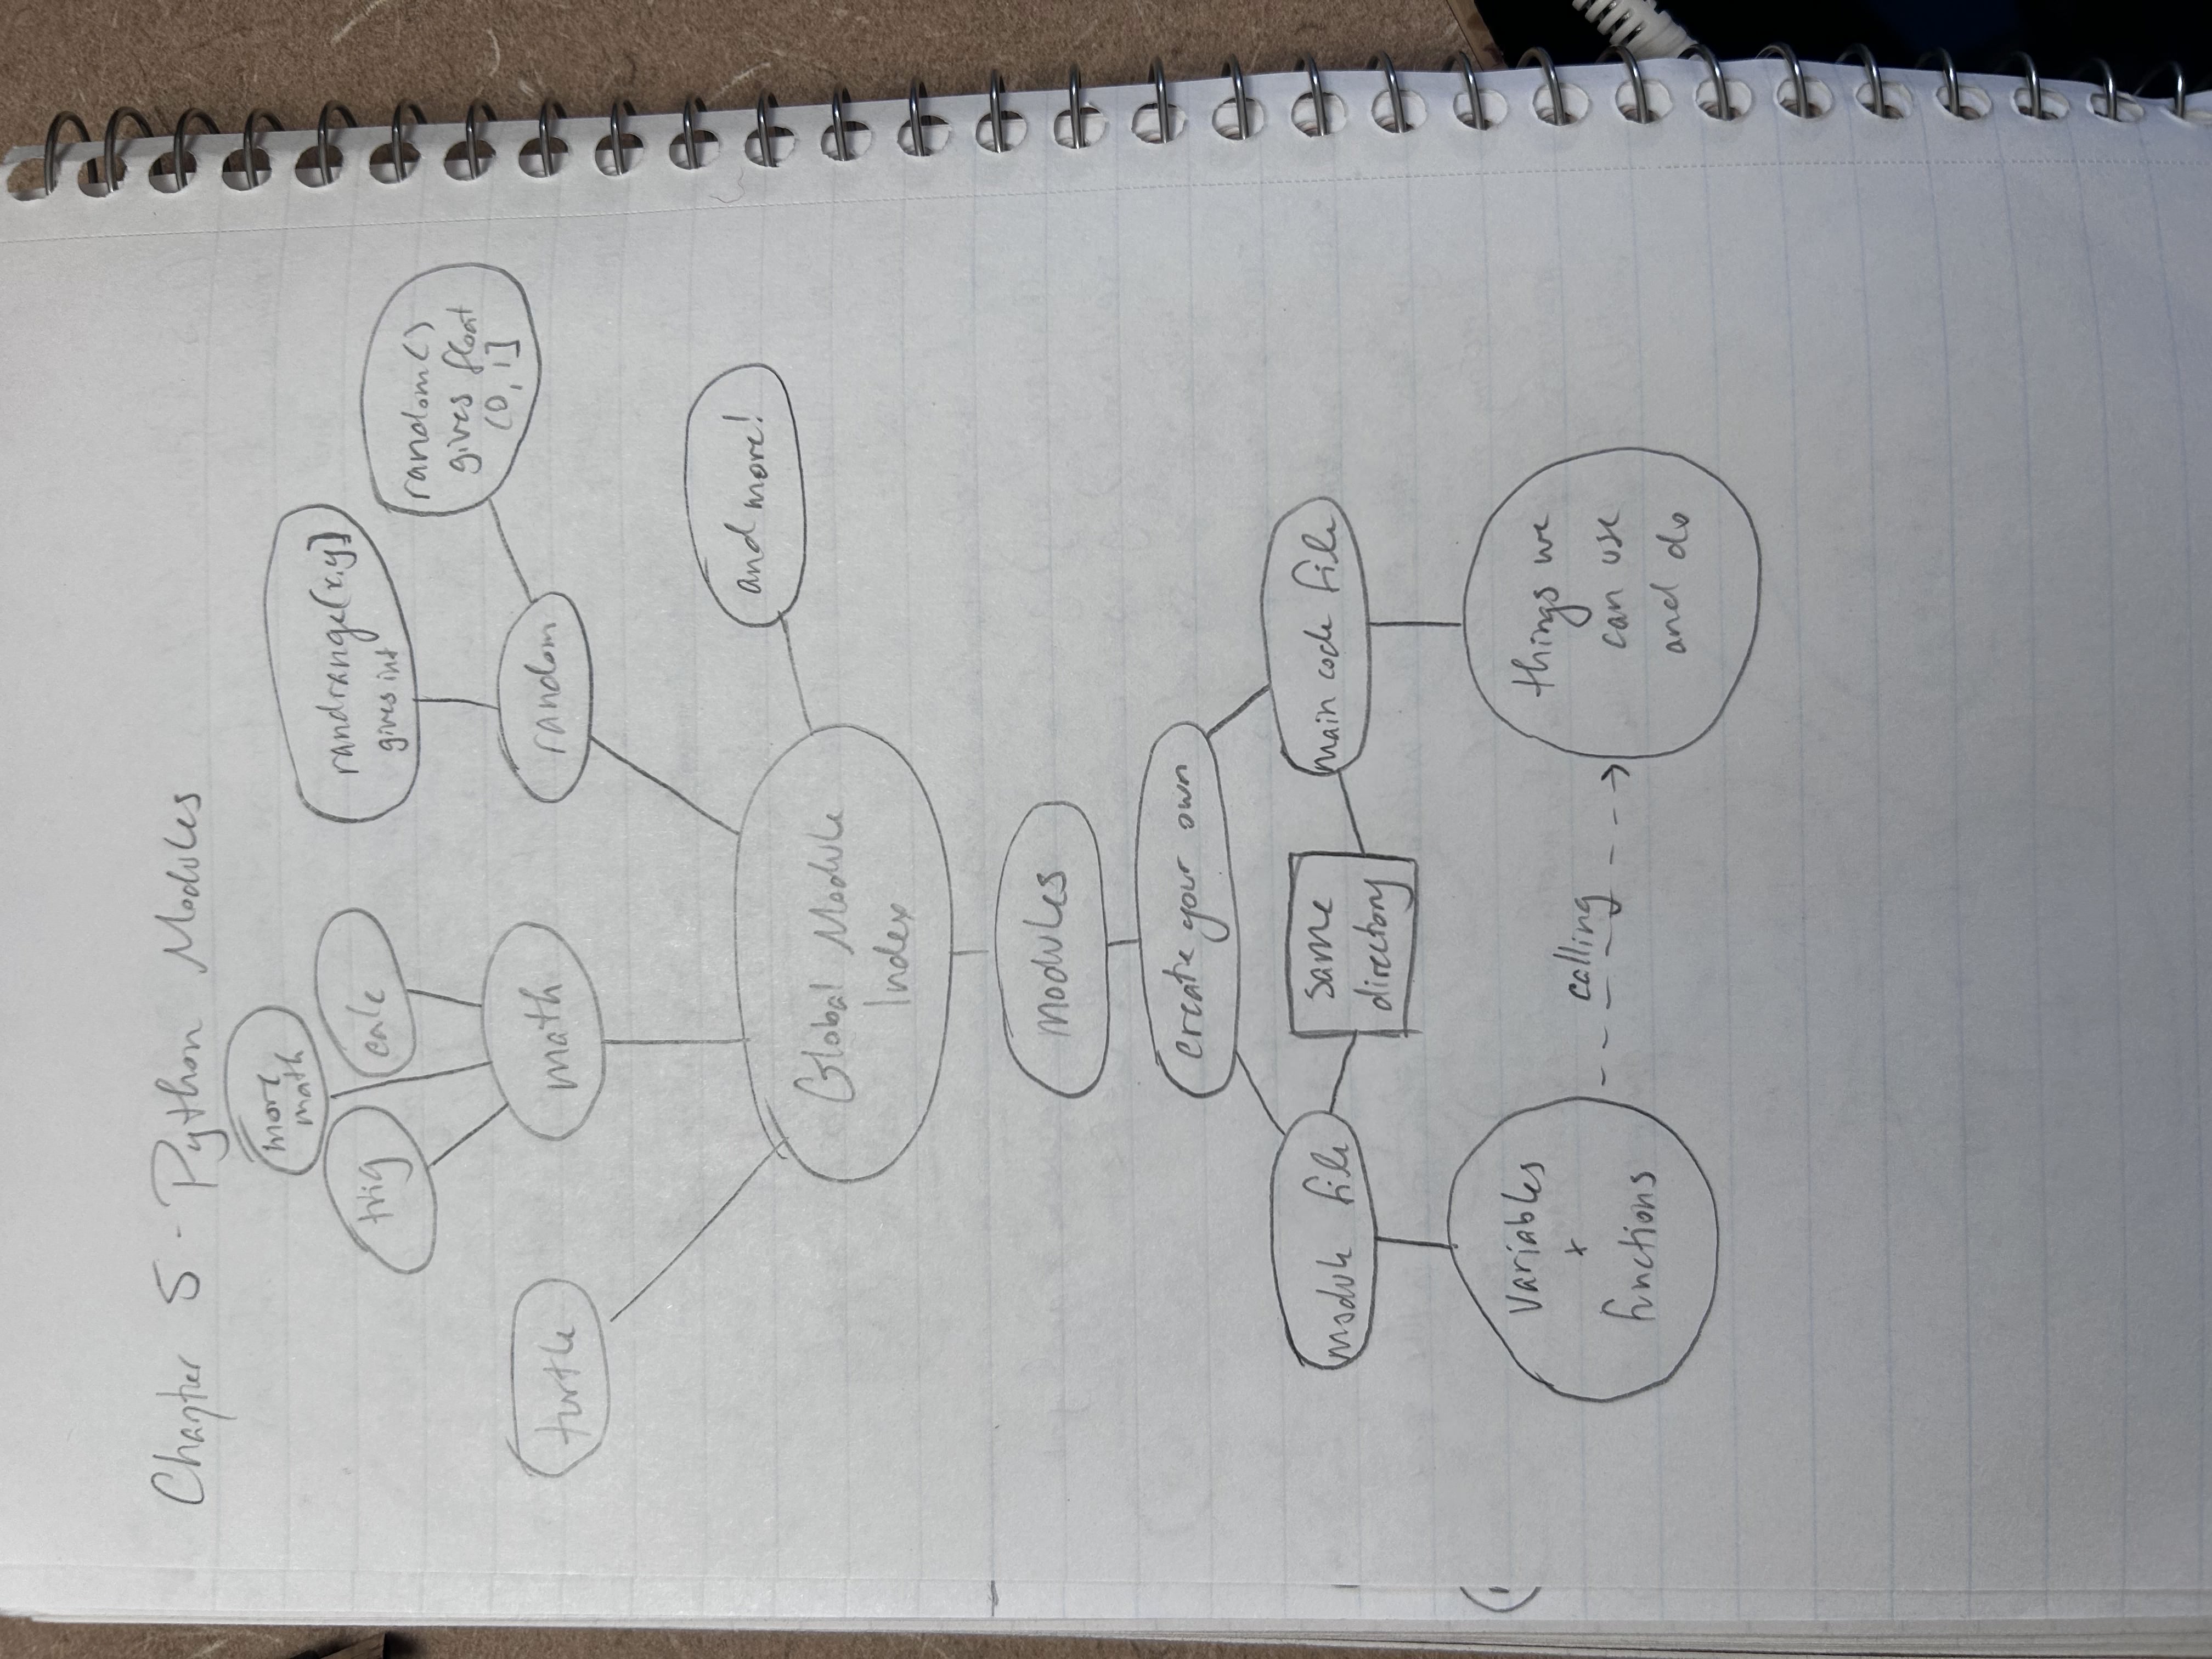 Chapter 5 - Python Modules
more
math
trig
calc
randrange[x,y]
gives int
random()
gives float
(0, 1]
turtle
math
random
and more!
Global Module
Index
modules
create your own
module file
same
directory
main code file
variables
+
functions
calling
things we
can use
and do